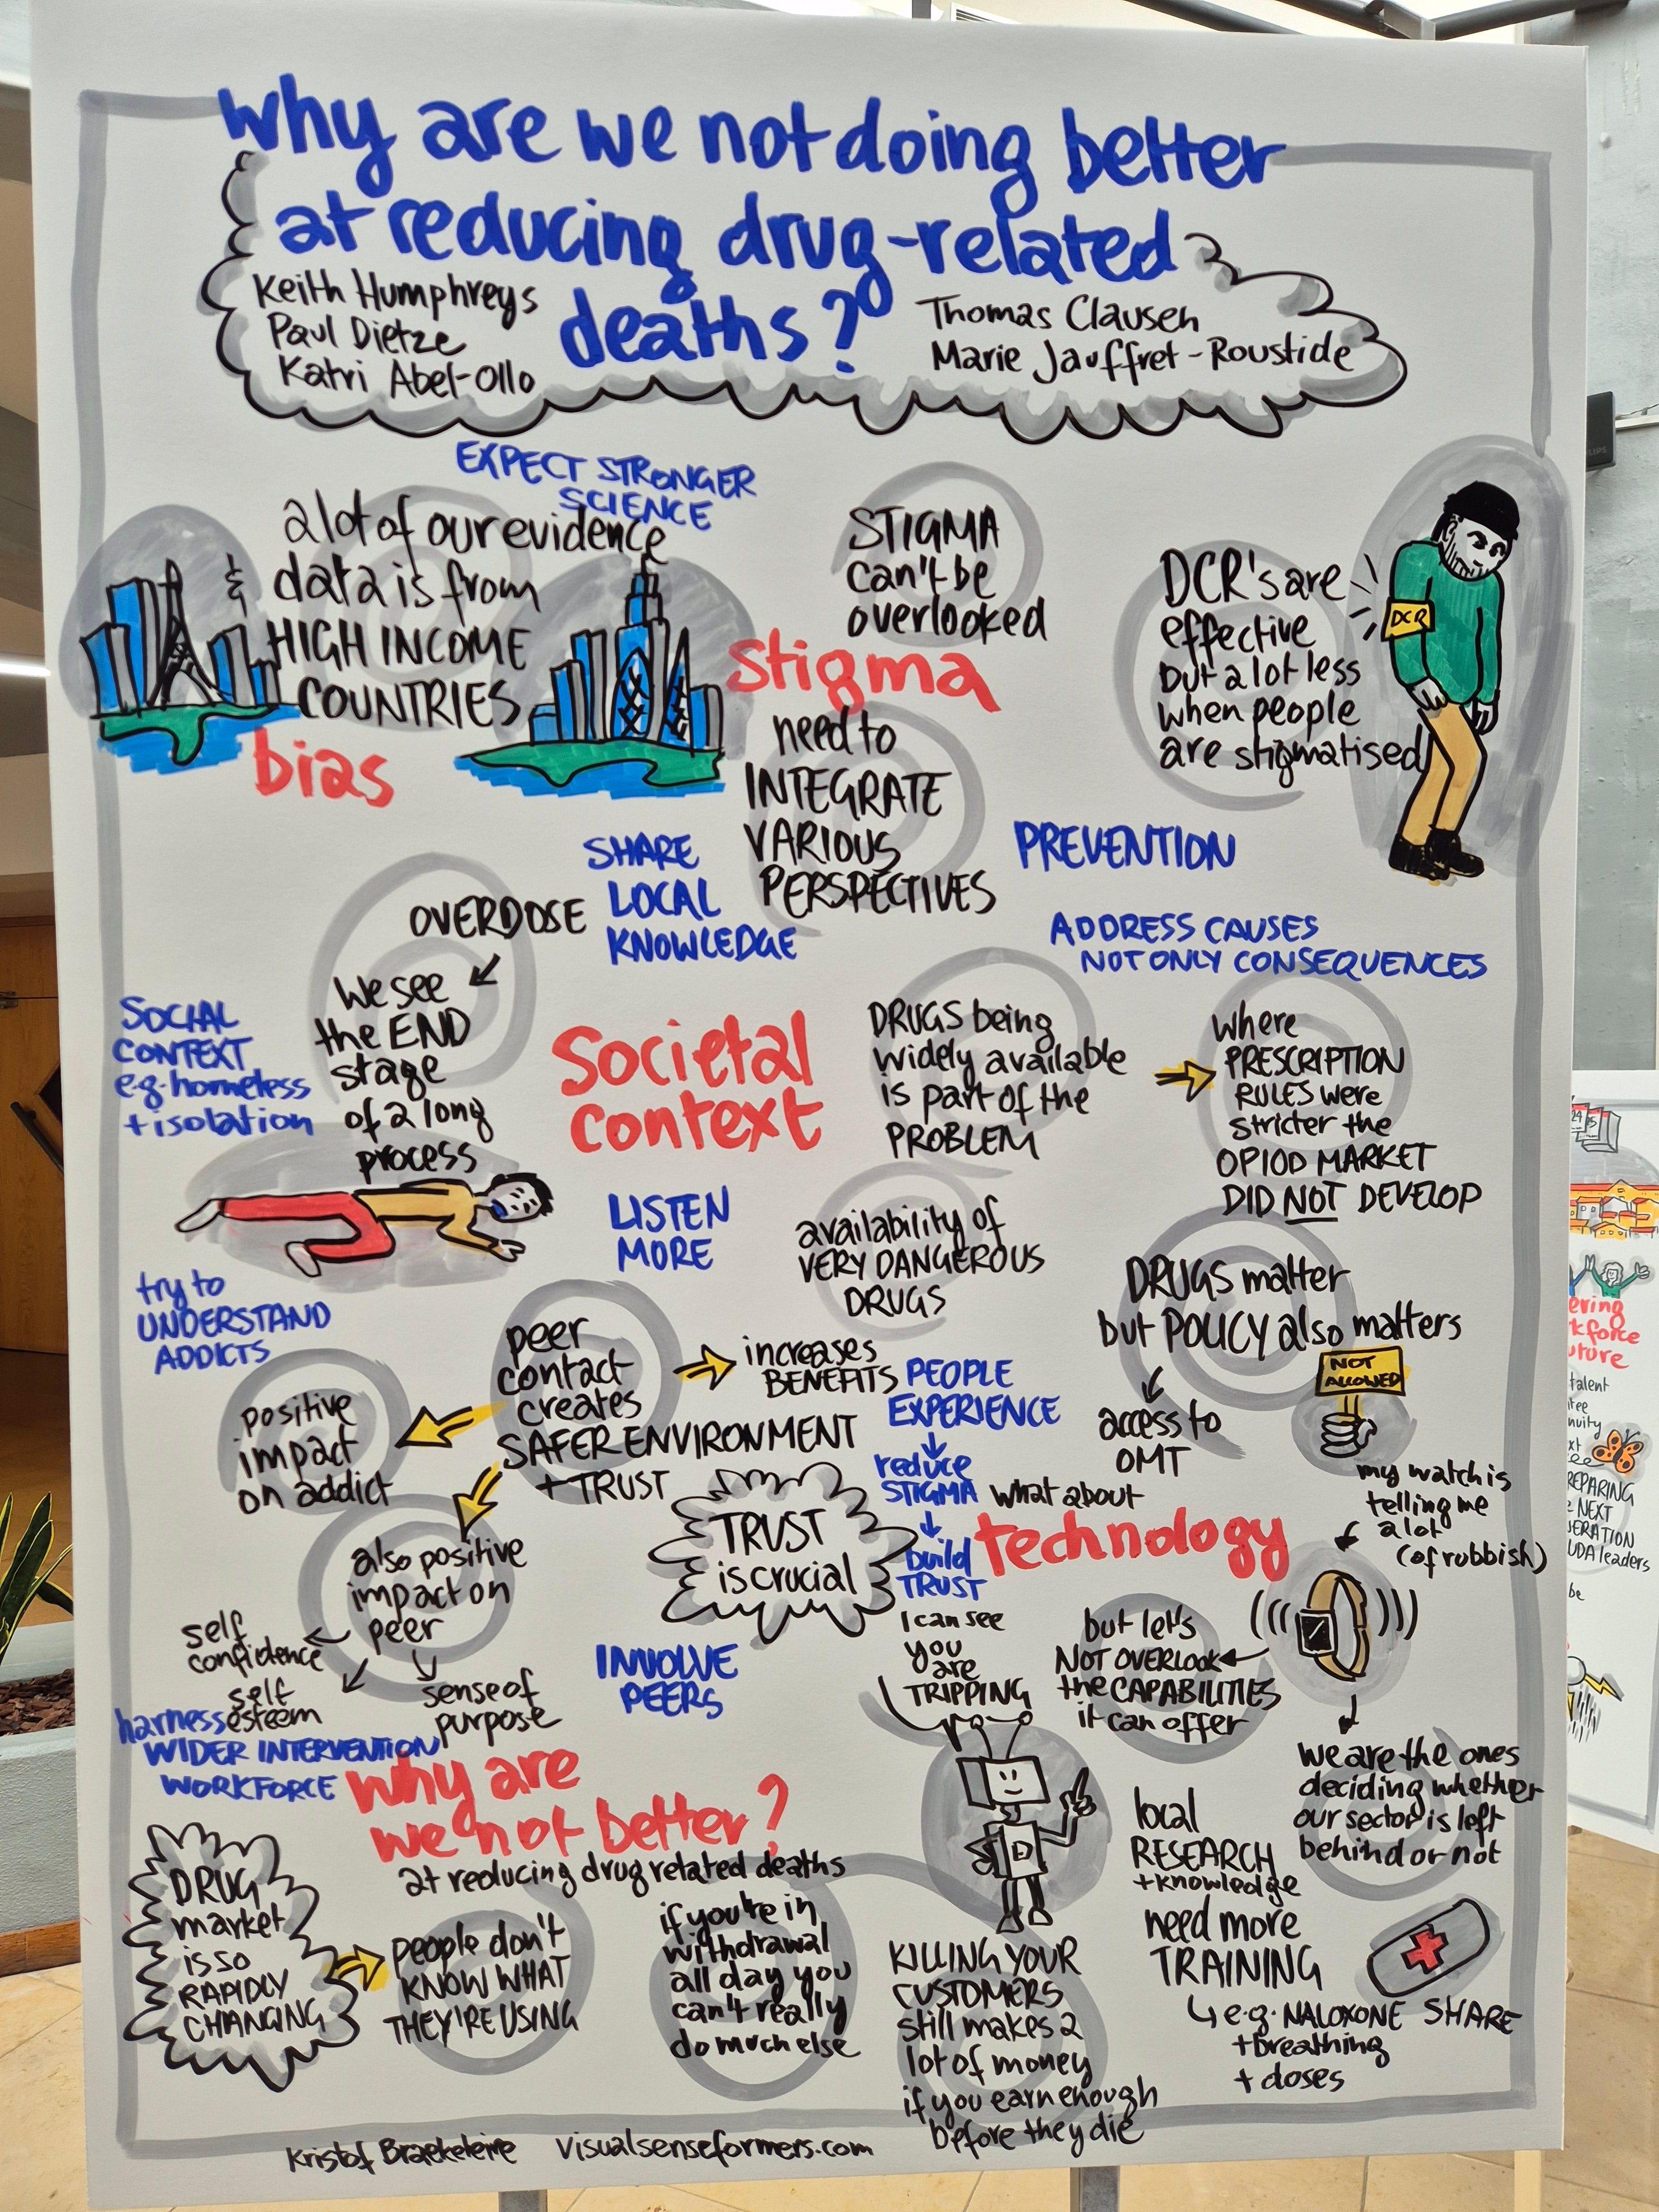 why are we not doing better
at reducing drug-related
deaths?
Keith Humphreys
Paul Dietze
Katri Abel-Ollo
Thomas Clausen
Marie Jauffret-Roustide
EXPECT STRONGER
SCIENCE
a lot of our evidence
& data is from
HIGH INCOME
COUNTRIES
bias
STIGMA
can't be
overlooked
stigma
need to
INTEGRATE
VARIOUS
PERSPECTIVES
DCR's are
effective
but a lot less
when people
are stigmatised
DCR
SHARE
LOCAL
KNOWLEDGE
PREVENTION
ADDRESS CAUSES
NOT ONLY CONSEQUENCES
OVERDOSE
We see
the END
stage
of a long
process
SOCIAL
CONTEXT
e.g. homeless
+ isolation
Societal
context
DRUGS being
widely available
is part of the
PROBLEM
where
PRESCRIPTION
RULES were
stricter the
OPIOD MARKET
DID NOT DEVELOP
LISTEN
MORE
availability of
VERY DANGEROUS
DRUGS
DRUGS matter
but POLICY also matters
NOT
ALLOWED
access to
OMT
try to
UNDERSTAND
ADDICTS
peer
contact
creates
SAFER ENVIRONMENT
+ TRUST
increases
BENEFITS
positive
impact
on addict
also positive
impact on
peer
self
confidence
self
esteem
sense of
purpose
PEOPLE
EXPERIENCE
reduce
STIGMA
build
TRUST
TRUST
is crucial
what about
technology
my watch is
telling me
a lot
(of rubbish)
but let's
NOT OVERLOOK
the CAPABILITIES
it can offer
I can see
you
are
TRIPPING
INVOLVE
PEERS
harness
WIDER INTERVENTION
WORKFORCE
we are the ones
deciding whether
our sector is left
behind or not
why are
we not better?
at reducing drug related deaths
DRUG
market
is so
RAPIDLY
CHANGING
people don't
KNOW WHAT
THEY'RE USING
if you're in
withdrawal
all day you
can't really
do much else
KILLING YOUR
CUSTOMERS
still makes a
lot of money
if you earn enough
before they die
local
RESEARCH
+ knowledge
need more
TRAINING
e.g. NALOXONE SHARE
+ breathing
+ doses
Kristof Braekeleire visualsenseformers.com
ering
kforce
uture
talent
nuity
REPARING
NEXT
ERATION
UDA leaders
be